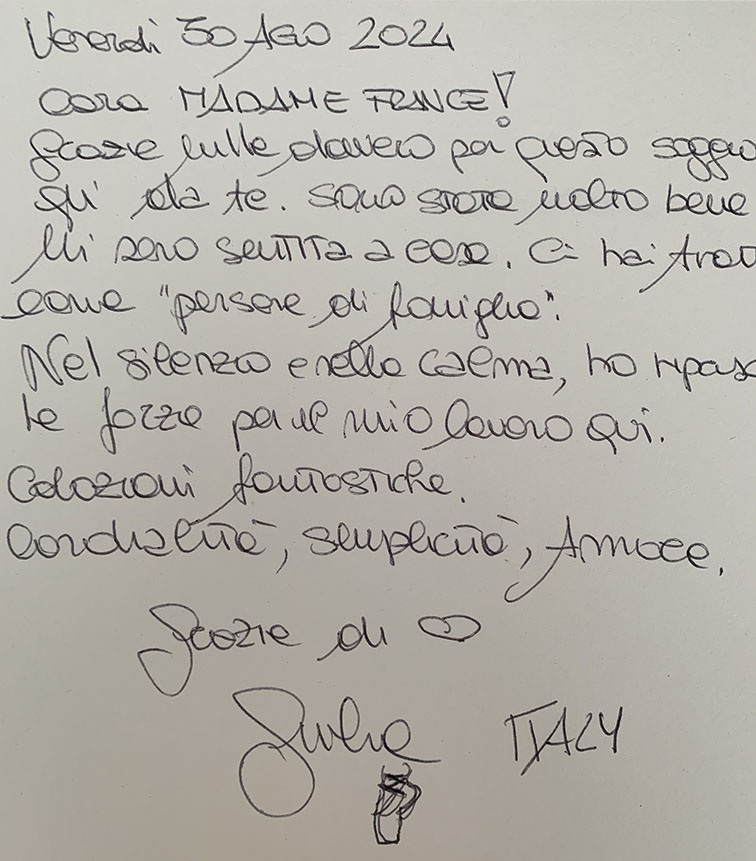 Venerdì 30 AGO 2024
Cara MADAME FRANCE!
Grazie mille davvero per questo soggio
qui da te. Sono stata molto bene
Mi sono sentita a casa. Ci hai trat
come "persone di famiglia".
Nel silenzio e nella calma, ho ripos
le forze per il mio lavoro qui.
Colazioni fantastiche.
Cordialità, semplicità, Amore.
Grazie di ♡
Giulia ITALY